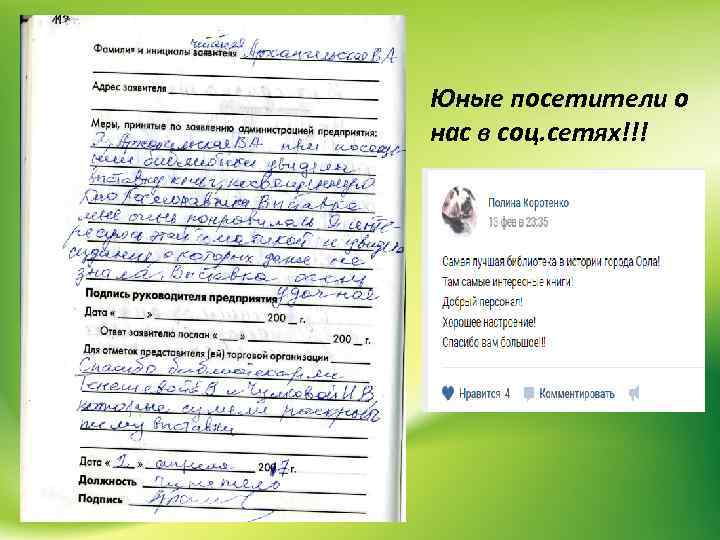 117
читателя
Фамилия и инициалы заявителя Архангельская В А
Адрес заявителя
Меры, принятые по заявлению администрацией предприятия:
Я, Архангельская В.А при посеще-
нии библиотеки увидела
выставку книг,
Выставка
мне очень понравилась. Я инте-
ресуюсь этой тематикой и увидела
издания о которых даже не
знала. Выставка очень
удачная
Подпись руководителя предприятия
Дата « » 200 г.
Ответ заявителю послан « » 200 г.
Для отметок представителя (ей) торговой организации
Спасибо библиотекарям
В и Чулковой И.В,
которые сумели раскрыть
тему выставки
Дата « 1 » апреля 2017 г.
Должность читатель
Подпись
Юные посетители о
нас в соц.сетях!!!
Полина Коротенко
13 фев в 23:35
Самая лучшая библиотека в истории города Орла!
Там самые интересные книги!
Добрый персонал!
Хорошее настроение!
Спасибо вам большое!!!
Нравится 4 Комментировать